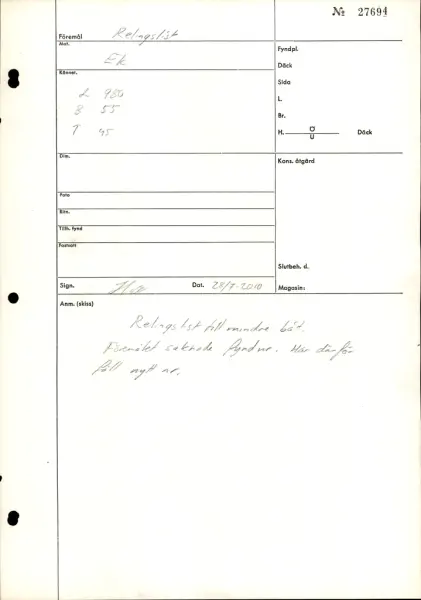 № 27694
Föremål Relingslist
Mat. Ek
Fyndpl.
Däck
Känner.
Sida
L 980
L.
B 55
Br.
T 45
H. Ö Däck
U
Dim.
Kons. åtgärd
Foto
Ritn.
Tillh. fynd
Formalt
Slutbeh. d.
Sign. Dat. 28/7-2010 Magasin:
Anm. (skiss)
Relingslist till mindre båt.
Föremålet saknade fyndnr. Har därför
fått nytt nr.